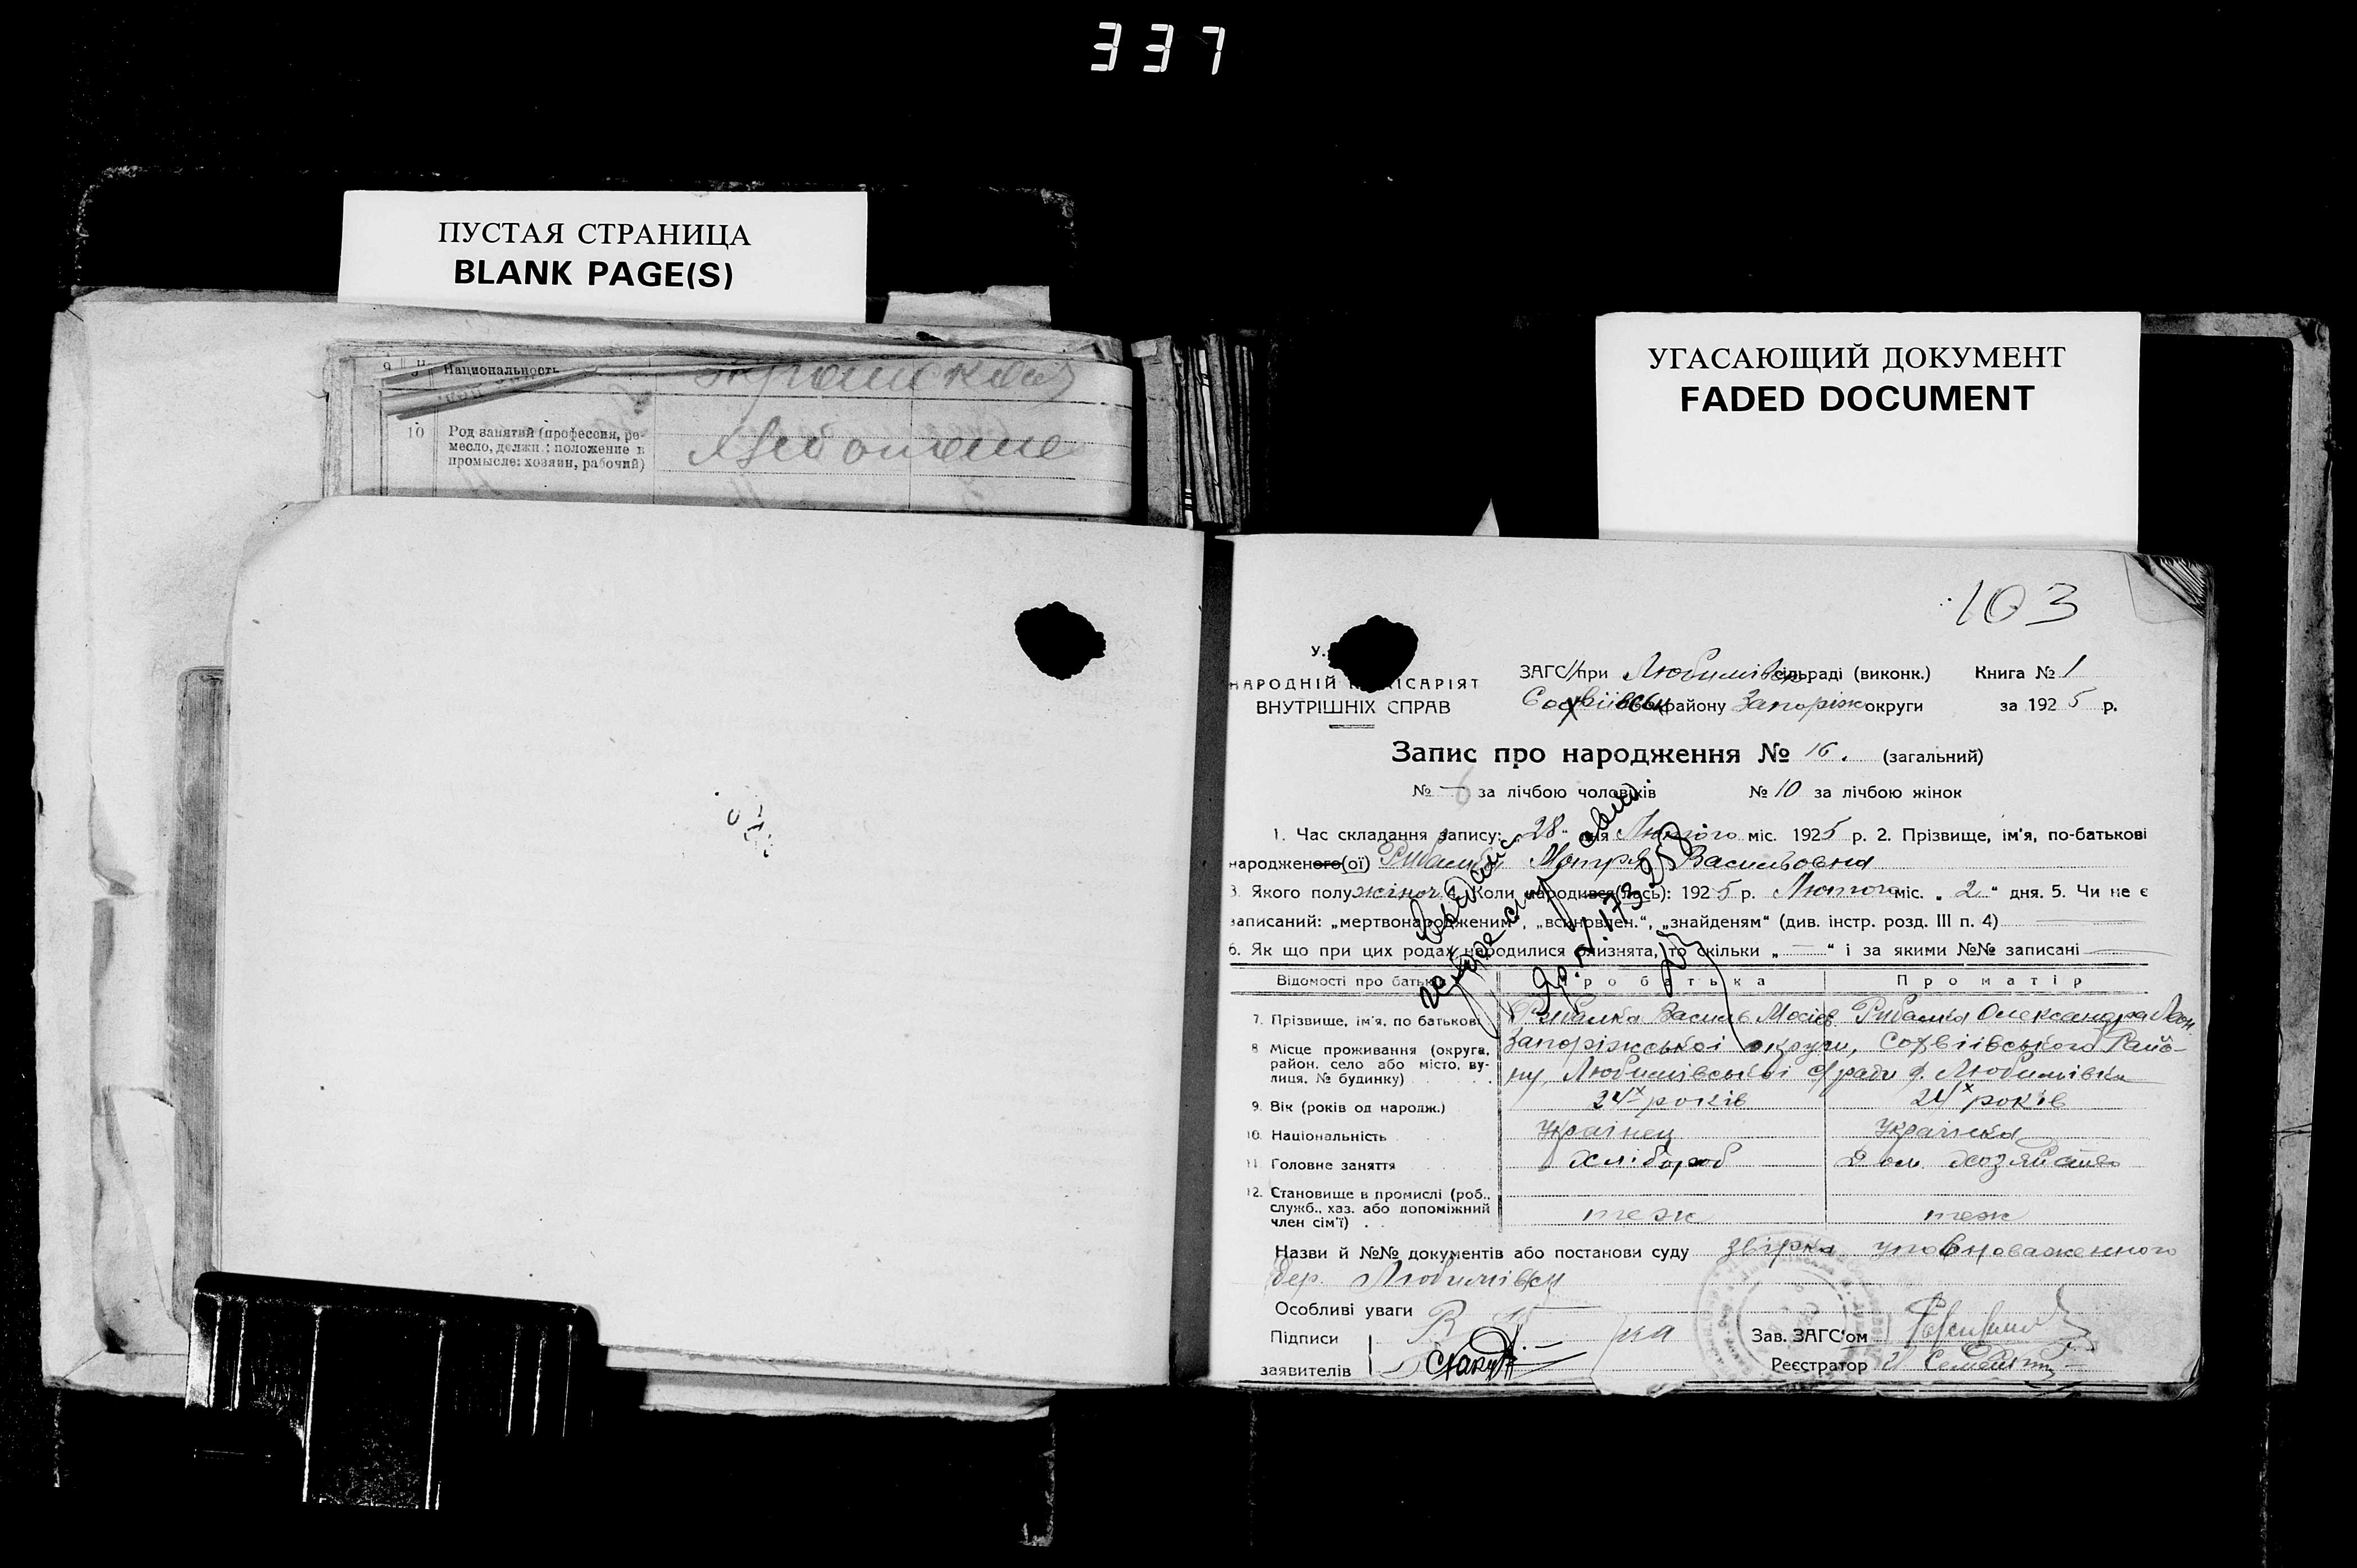 337
ПУСТАЯ СТРАНИЦА
BLANK PAGE(S)
9 Национальность
10 Род занятий (профессия, ре-
месло, должн.; положение в
промысле: хозяин, рабочий)
УГАСАЮЩИЙ ДОКУМЕНТ
FADED DOCUMENT
103
У.
НАРОДНІЙ К ІСАРІЯТ
ВНУТРІШНІХ СПРАВ
ЗАГС при Любимівск сільраді (виконк.) Книга № 1
Софіівськ району Запоріж округи за 1925 р.
Запис про народження № 16. (загальний)
№ за лічбою чоловіків № 10 за лічбою жінок
1. Час складання запису: „28“ дня Лютого міс. 1925 р. 2. Прізвище, ім'я, по-батькові
народженого(ої) Рибалка Мотря Васильовна
3. Якого полу жіноч 4. Коли народився(лась): 1925 р. Лютого міс. „2“ дня. 5. Чи не є
записаний: „мертвонародженим“, „всиновлен.“, „знайденям“ (див. інстр. розд. III п. 4)
6. Як що при цих родах народилися близнята, то скільки „—“ і за якими №№ записані —
Відомості про батьків Про батька Про матір
7. Прізвище, ім'я, по батькові Рибалка Василь Мосіев Рибалка Олександра
8 Місце проживання (округа, район, село або місто, ву-лиця, № будинку) Запоріжської округи, Софвіівського Рай-
ну, Любимівської с/ради д. Любимівка
9. Вік (років од народж.) 24х років 24х років
10. Національність Украінец Украінка
11. Головне заняття Хлібороб Дом. хозяйство
12. Становище в промислі (роб., служб., хаз. або допоміжний член сім'ї) теж теж
Назви й №№ документів або постанови суду звірка уповноваженного
дер. Любимівки
Особливі уваги
Підписи
заявителів
Зав. ЗАГС'ом
Реєстратор